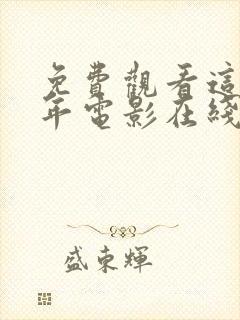 免費觀看這
年電影在綫
盛東輝